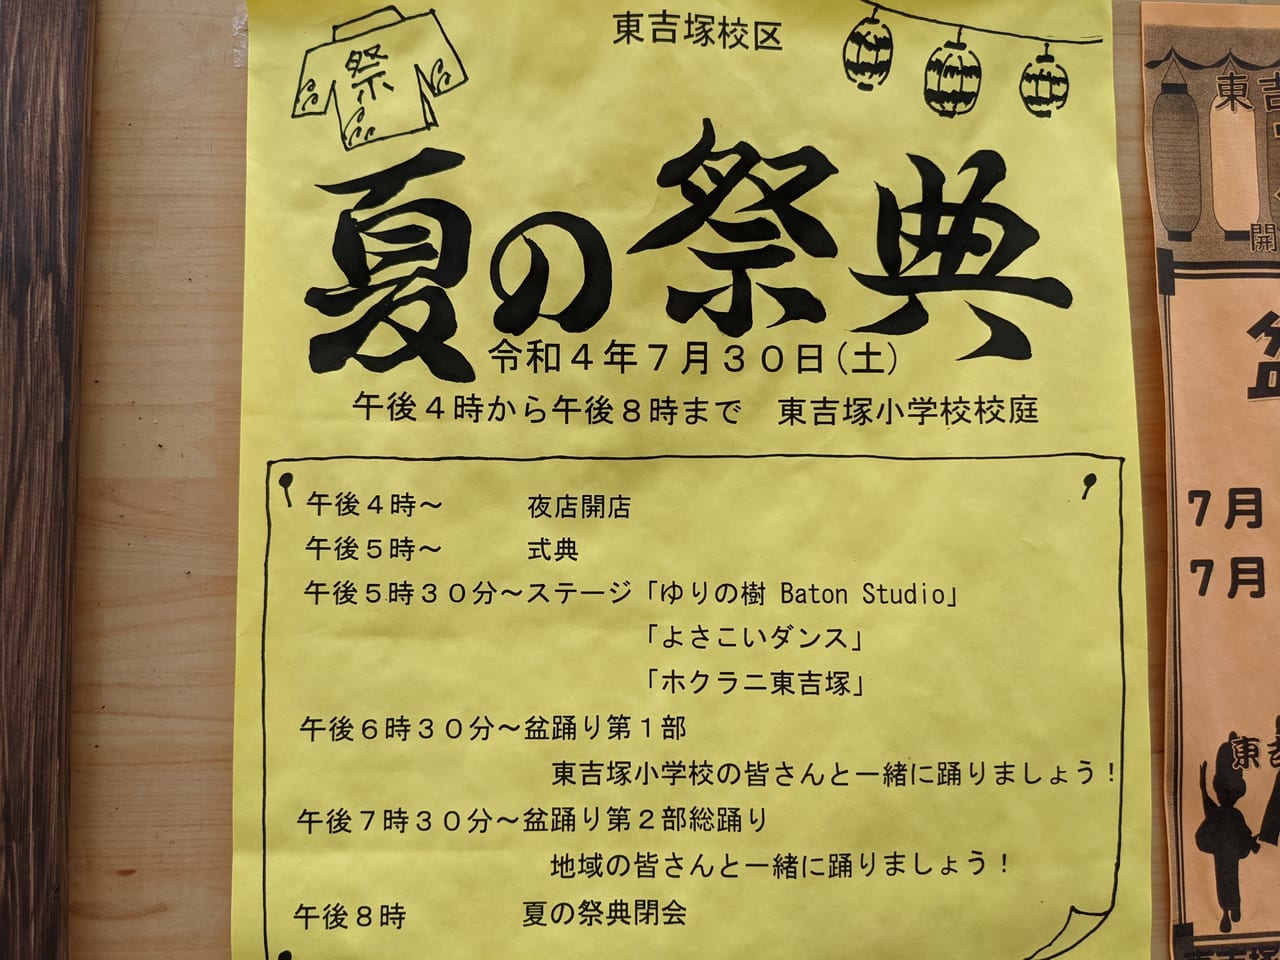 東吉塚校区
祭
夏の祭典
令和４年７月３０日（土）
午後４時から午後８時まで　東吉塚小学校校庭
午後４時～　夜店開店
午後５時～　式典
午後５時３０分～ステージ「ゆりの樹 Baton Studio」
「よさこいダンス」
「ホクラニ東吉塚」
午後６時３０分～盆踊り第１部
東吉塚小学校の皆さんと一緒に踊りましょう！
午後７時３０分～盆踊り第２部総踊り
地域の皆さんと一緒に踊りましょう！
午後８時　夏の祭典閉会
東吉
開
盆
７月
７月
東吉塚